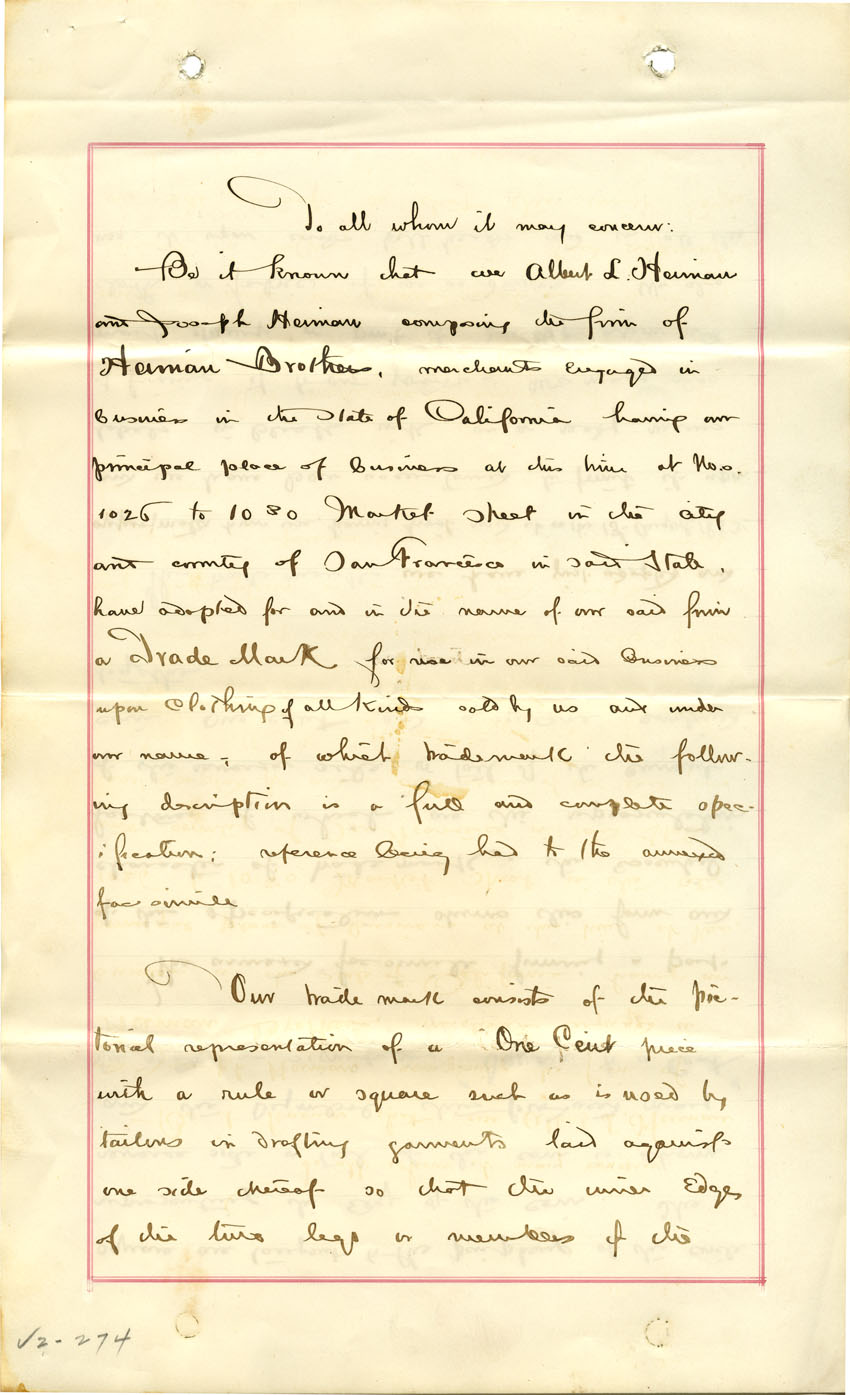 To all whom it may concern:
Be it known that we Albert L. Heiman
and Joseph Heiman composing the firm of
Heiman Brothers, merchants engaged in
business in the State of California having our
principal place of business at this time at Nos.
1026 to 1030 Market street in the city
and county of San Francisco in said State,
have adopted for and in the name of our said firm
a Trade Mark for use in our said business
upon Clothing of all kinds sold by us and under
our name, of which trademark the follow-
ing description is a full and complete spec-
ification; reference being had to the annexed
fac simile
Our trade mark consists of the pic-
torial representation of a One Cent piece
with a rule or square such as is used by
tailors in drafting garments laid against
one side thereof so that the inner Edges
of the two legs or members of the
V2-274